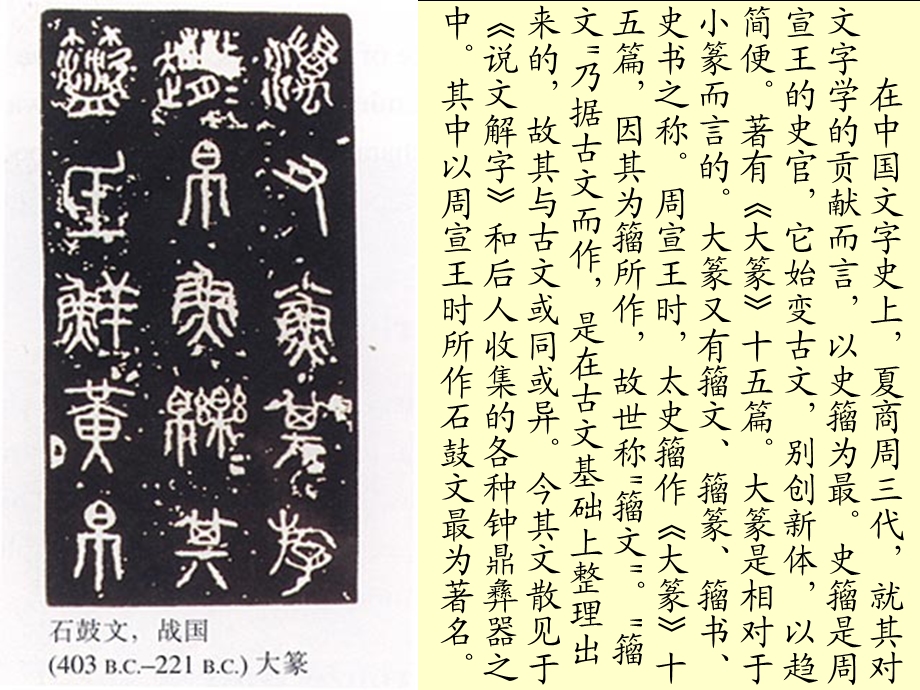 在中国文字史上，夏商周三代，就其对
文字学的贡献而言，以史籀为最。史籀是周
宣王的史官，它始变古文，别创新体，以趋
简便。著有《大篆》十五篇。大篆是相对于
小篆而言的。大篆又有籀文、籀篆、籀书、
史书之称。周宣王时，太史籀作《大篆》十
五篇，因其为籀所作，故世称"籀文"。"籀
文"乃据古文而作，是在古文基础上整理出
来的，故其与古文或同或异。今其文散见于
《说文解字》和后人收集的各种钟鼎彝器之
中。其中以周宣王时所作石鼓文最为著名。
又其斿
帛魚其
氐鮮黃帛
石鼓文，战国
(403 B.C.–221 B.C.) 大篆